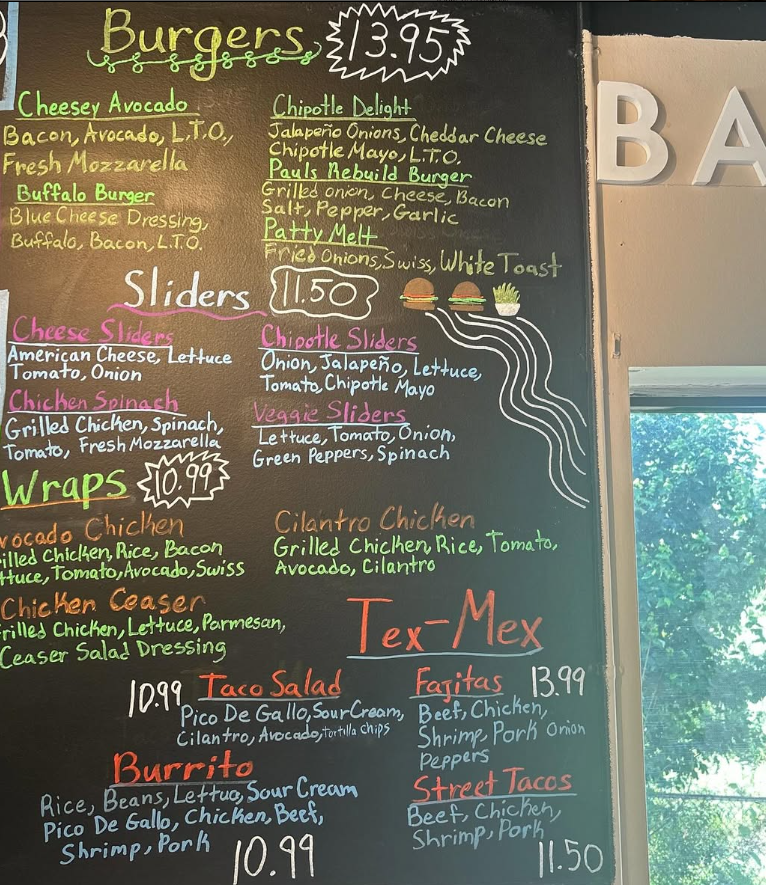 Burgers 13.95
Cheesey Avocado
Bacon, Avocado, L.T.O.,
Fresh Mozzarella
Buffalo Burger
Blue Cheese Dressing,
Buffalo, Bacon, L.T.O.
Chipotle Delight
Jalapeño Onions, Cheddar Cheese
Chipotle Mayo, L.T.O.
Pauls Rebuild Burger
Grilled onion, Cheese, Bacon
Salt, Pepper, Garlic
Patty Melt
Fried Onions, Swiss, White Toast
Sliders 11.50
Cheese Sliders
American Cheese, Lettuce
Tomato, Onion
Chicken Spinash
Grilled Chicken, Spinach,
Tomato, Fresh Mozzarella
Chipotle Sliders
Onion, Jalapeño, Lettuce,
Tomato, Chipotle Mayo
Veggie Sliders
Lettuce, Tomato, Onion,
Green Peppers, Spinach
Wraps 10.99
vocado Chicken
illed Chicken, Rice, Bacon
ttuce, Tomato, Avocado, Swiss
Chicken Ceaser
rilled Chicken, Lettuce, Parmesan,
Ceaser Salad Dressing
Cilantro Chicken
Grilled Chicken, Rice, Tomato,
Avocado, Cilantro
Tex-Mex
10.99 Taco Salad
Pico De Gallo, Sour Cream,
Cilantro, Avocado, tortilla chips
Fajitas 13.99
Beef, Chicken,
Shrimp, Pork Onion
Peppers
Burrito
Rice, Beans, Lettuo, Sour Cream
Pico De Gallo, Chicken, Beef,
Shrimp, Pork
10.99
Street Tacos
Beef, Chicken,
Shrimp, Pork
11.50
BA